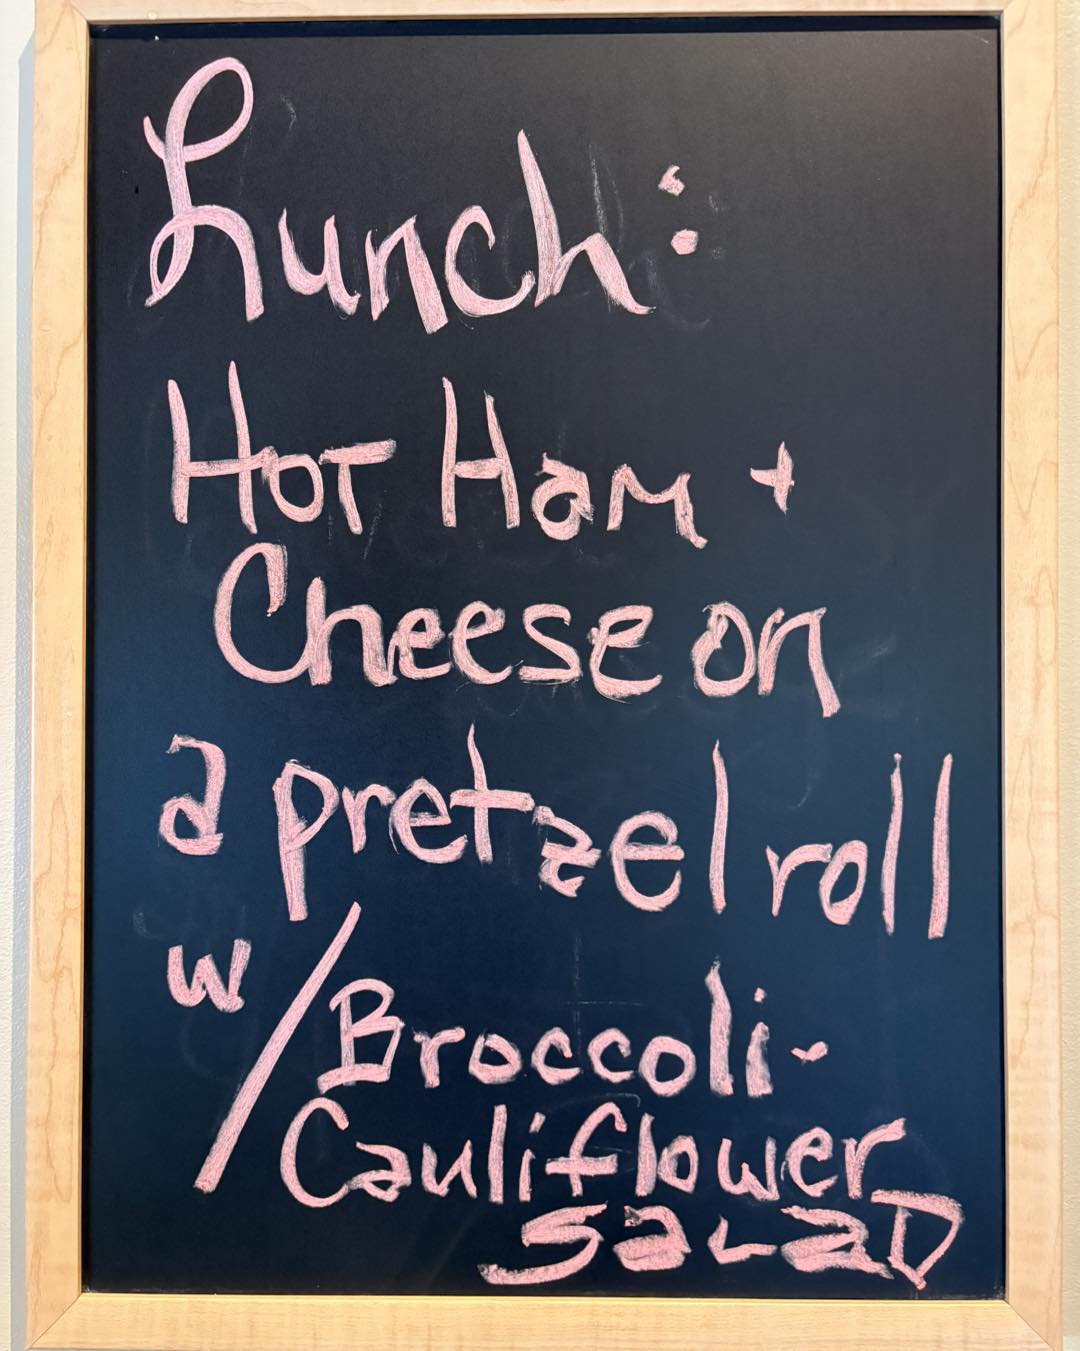 Lunch:
Hot Ham +
Cheese on
a pretzel roll
w/Broccoli-
Cauliflower
Salad